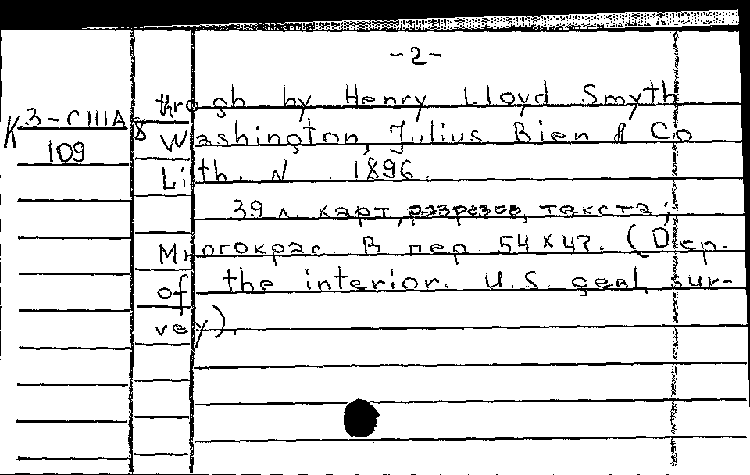 -2-
throgh by Henry Lloyd Smyth
К 3-США
109
8
Washington, Julius Bien & Co
Lith. N 1896.
39 л. карт, разрезов, текста;
Многокрас В пер 54х47. (Dep.
of the interior. U.S. geol sur-
vey).